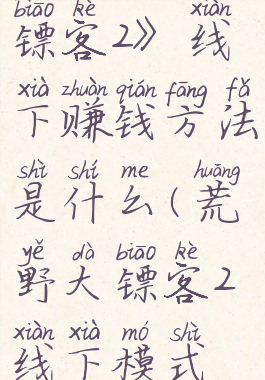 biāo kè xiàn
镖客2》 线
xià zhuàn qián fāng fǎ
下赚钱方法
shì shí me huāng
是什么(荒
yě dà biāo kè
野大镖客2
xiàn xià mó shì
线下模式